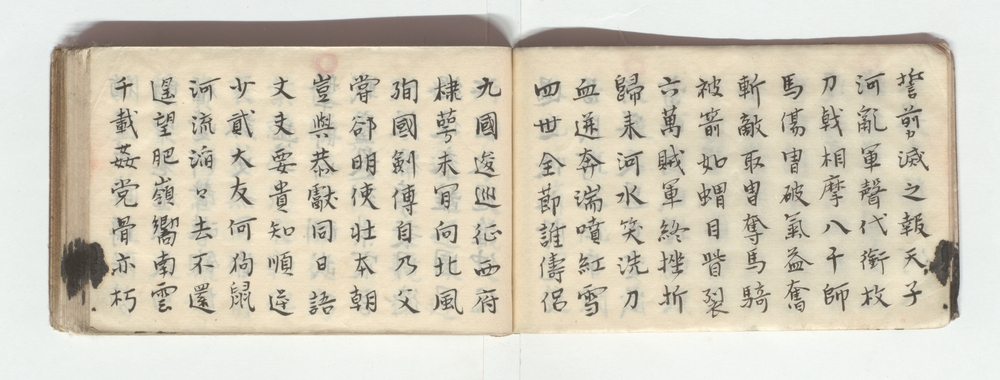 誓剪滅之報天子
河亂軍聲代銜枚
刀戟相摩八千師
馬傷冑破氣益奮
斬敵取冑奪馬騎
被箭如蝟目眥裂
六萬賊軍終挫折
歸來河水笑洗刀
血迸奔湍噴紅雪
四世全節誰儔侶
九國逡巡征西府
棣萼未肎向北風
殉國劍傳自乃父
嘗卻明使壯本朝
豈與恭獻同日語
丈夫要貴知順逆
少貳大友何狗鼠
河流滔々去不還
遥望肥嶺嚮南雲
千載姦党骨亦朽